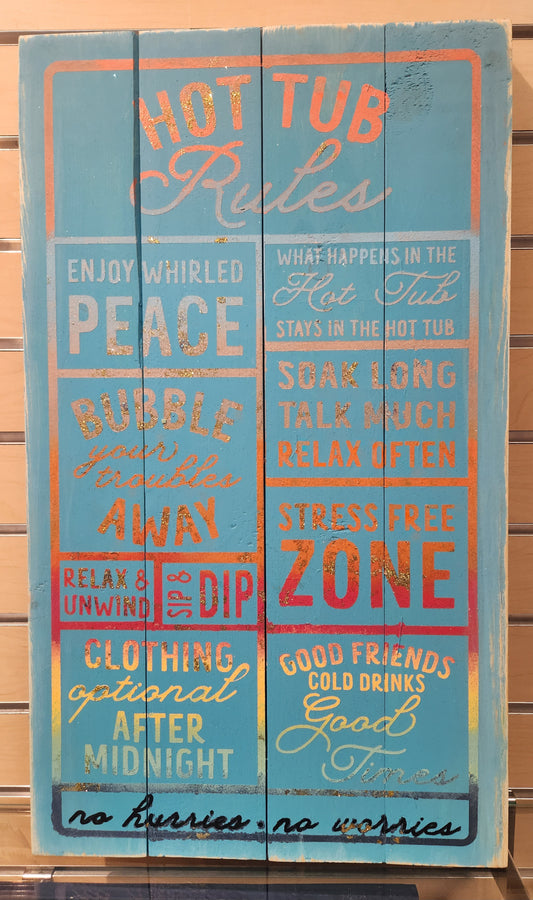 HOT TUB
Rules
ENJOY WHIRLED
PEACE
WHAT HAPPENS IN THE
Hot Tub
STAYS IN THE HOT TUB
BUBBLE
your
troubles
AWAY
SOAK LONG
TALK MUCH
RELAX OFTEN
RELAX &
UNWIND
SIP &
DIP
STRESS FREE
ZONE
CLOTHING
optional
AFTER
MIDNIGHT
GOOD FRIENDS
COLD DRINKS
Good
Times
no hurries • no worries